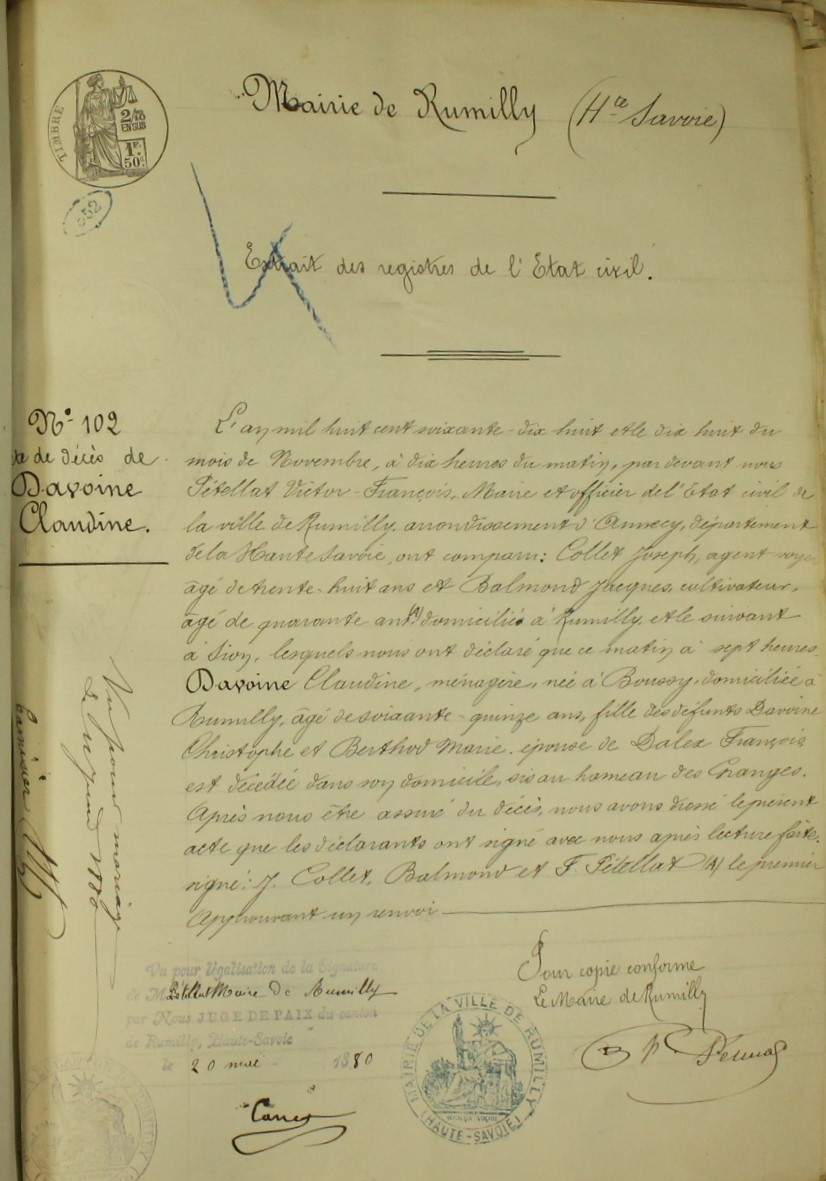 Mairie de Rumilly (Hte Savoie)
TIMBRE
2/10 EN SUS
1F 50c
552
Extrait des registres de l'Etat civil.
No 102
te de décès de
Davoine
Claudine.
L'an mil huit cent soixante-dix huit et le dix huit du
mois de Novembre, à dix heures du matin, par devant nous
Pétellat Victor-François, Maire et officier de l'Etat civil de
la ville de Rumilly, arrondissement d'Annecy, département
de la Haute Savoie, ont comparu: Collet Joseph, agent-voyer
âgé de trente-huit ans et Balmond Jacques, cultivateur,
âgé de quarante ans (A) domiciliés à Rumilly, et le suivant
à Sion, lesquels nous ont déclaré que ce matin à sept heures
Davoine Claudine, ménagère, née à Boussy, domiciliée à
Rumilly, âgé de soixante-quinze ans, fille des défunts Davoine
Christophe et Berthod Marie, épouse de Dalex François
est décédée dans son domicile, sis au hameau des Granges.
Après nous être assuré du décès, nous avons dressé le présent
acte que les déclarants ont signé avec nous après lecture faite.
signé: J. Collet, Balmond et F. Pétellat (A) le premier
Approuvant un renvoi
Vu pour mariage
1880
Pour copie conforme
Le Maire de Rumilly
Vu pour légalisation de la Signature
de M. Pétellat Maire de Rumilly
par Nous JUGE DE PAIX du canton
de Rumilly, Haute-Savoie
le 20 mai 1880
MAIRIE DE LA VILLE DE RUMILLY
(HAUTE-SAVOIE)